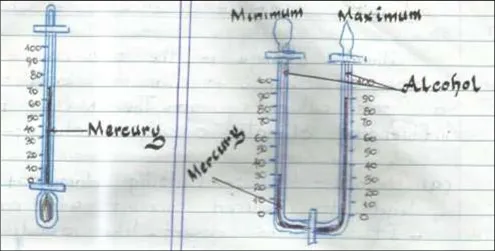 Minimum
Maximum
100
90
80
70
60
50
40
30
20
10
0
Mercury
100
90
80
70
60
50
40
30
20
10
0
Mercury
Alcohol
100
90
80
70
60
50
40
30
20
10
0